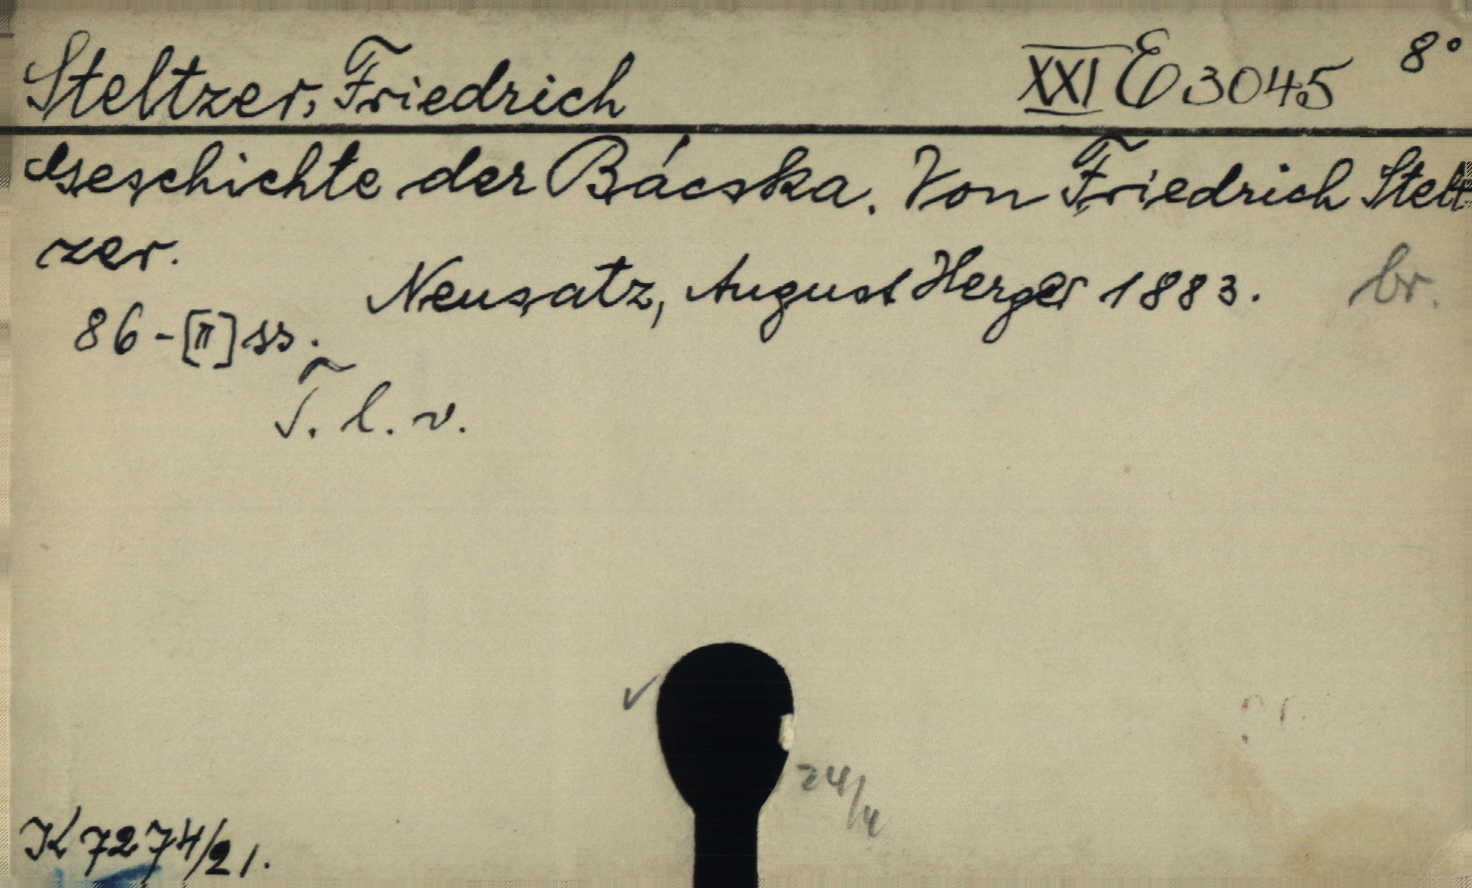 Steltzer, Friedrich XXI E 3045 8°
Geschichte der Bácska. Von Friedrich Stelt
zer.
Neusatz, August Herger 1883. br.
86 - [II] ss.
T. l. v.
24/4
K 7274/21.